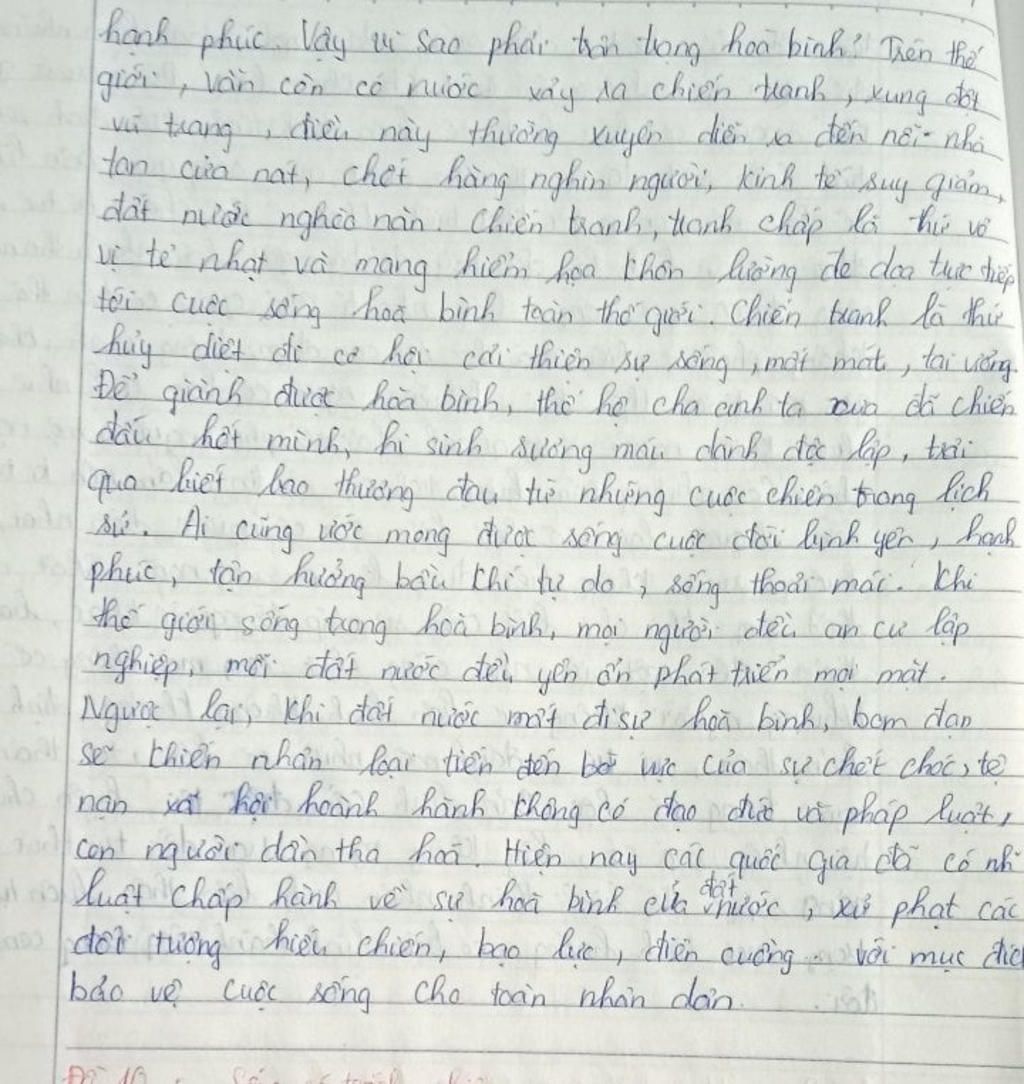 hạnh phúc. Vậy vì sao phải trân trọng hoà bình? Trên thế
giới, vẫn còn có nước xảy ra chiến tranh, xung đột
vũ trang, điều này thường xuyên diễn ra đến nỗi nhà
tan cửa nát, chết hàng nghìn người, kinh tế suy giảm,
đất nước nghèo nàn. Chiến tranh, tranh chấp là thứ vô
vị tẻ nhạt và mang hiểm họa khôn lường đe dọa trực tiếp
tới cuộc sống hoà bình toàn thế giới. Chiến tranh là thứ
hủy diệt đi cơ hội cải thiện sự sống, mất mát, tai ương.
Để giành được hòa bình, thế hệ cha anh ta xưa đã chiến
đấu hết mình, hi sinh sương máu dành độc lập, trải
qua biết bao thương đau từ những cuộc chiến trong lịch
sử. Ai cũng ước mong được sống cuộc đời bình yên, hạnh
phúc, tận hưởng bầu khí tự do, sống thoải mái. Khi
thế giới sống trong hoà bình, mọi người đều an cư lập
nghiệp, mỗi đất nước đều yên ổn phát triển mọi mặt.
Ngược lại, khi đất nước mất đi sự hoà bình, bom đạn
sẽ khiến nhân loại tiến đến bờ vực của sự chết chóc, tệ
nạn xã hội hoành hành không có đạo đức và pháp luật,
con người dần tha hoá. Hiện nay các quốc gia đã có nh
luật chấp hành về sự hoà bình của đất nước, xử phạt các
đối tượng hiếu chiến, bạo lực, điên cuồng với mục đíc
bảo vệ cuộc sống cho toàn nhân dân.